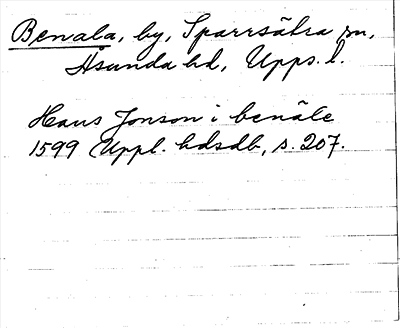 Benala, by, Sparrsätra sn,
Åsunda hd, Upps. l.
Hans Jonson i benäle
1599 Uppl. hdsdb, s. 207.